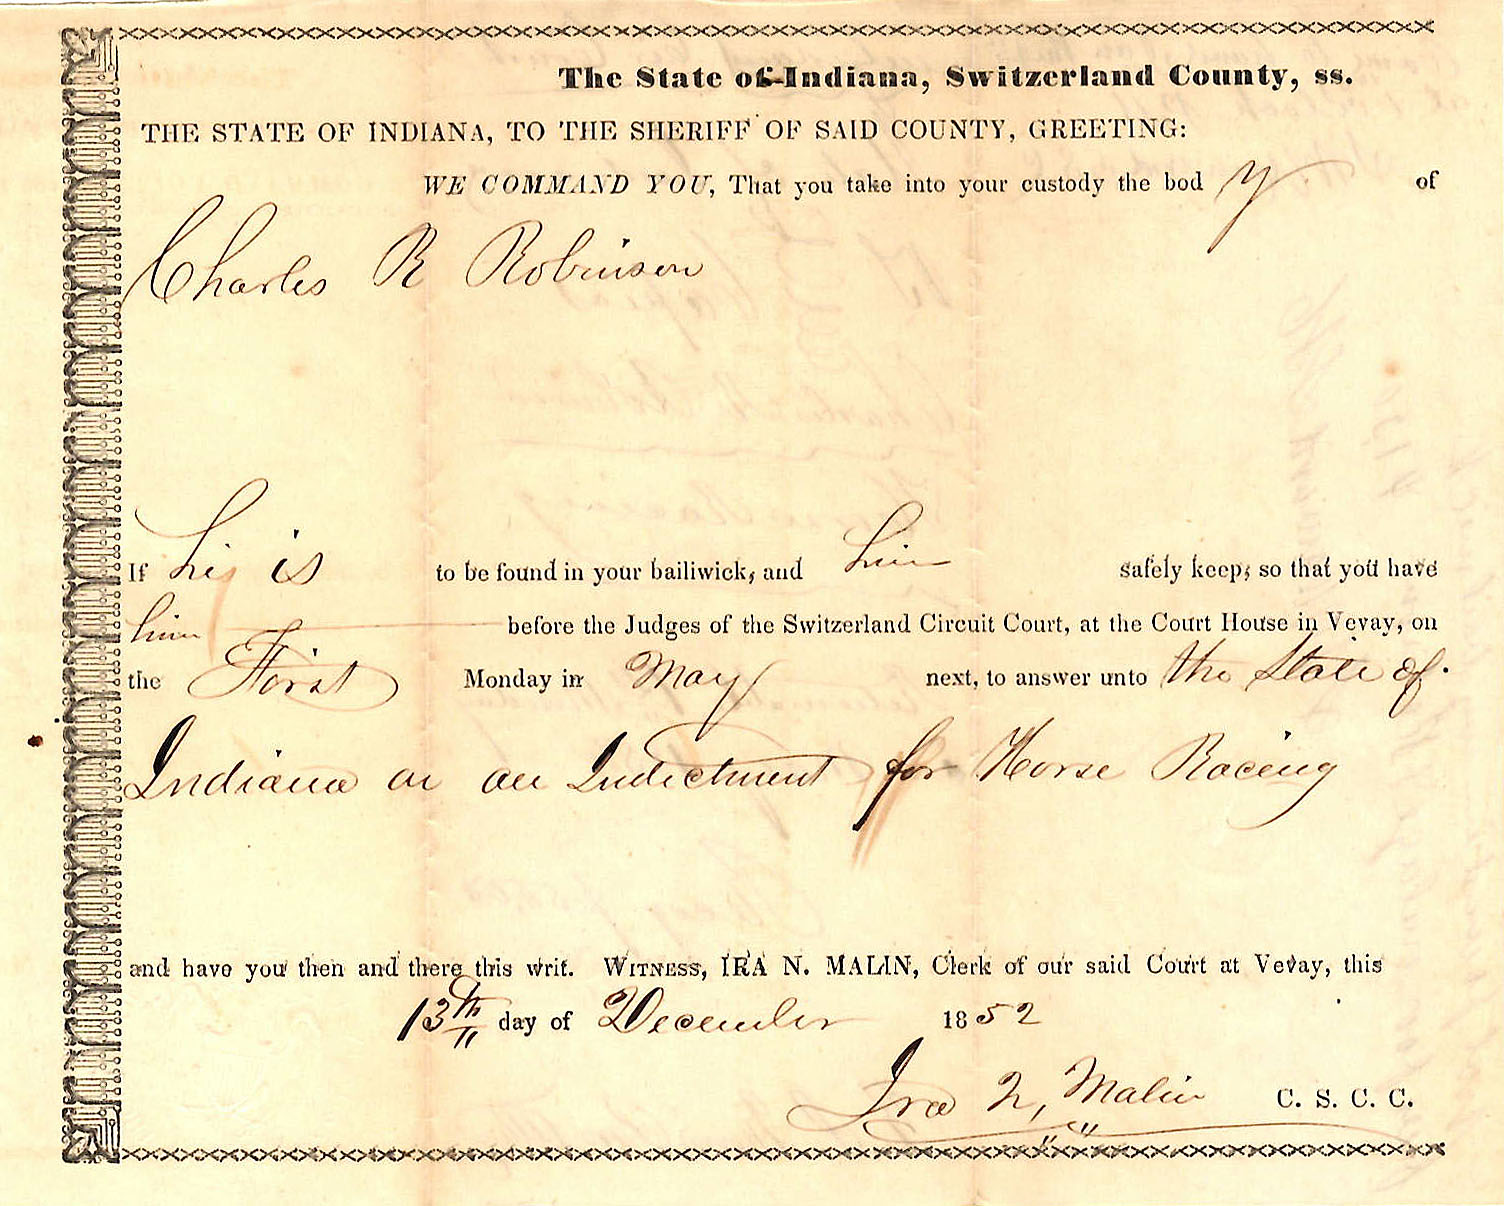 The State of Indiana, Switzerland County, ss.
THE STATE OF INDIANA, TO THE SHERIFF OF SAID COUNTY, GREETING:
WE COMMAND YOU, That you take into your custody the bod y of
Charles R Robinson
If he is to be found in your bailiwick, and him safely keep; so that you have
him before the Judges of the Switzerland Circuit Court, at the Court House in Vevay, on
the First Monday in May next, to answer unto the State of
Indiana on an Indictment for Horse Racing
and have you then and there this writ. WITNESS, IRA N. MALIN, Clerk of our said Court at Vevay, this
13th day of December 1852
Ira N, Malin C. S. C. C.